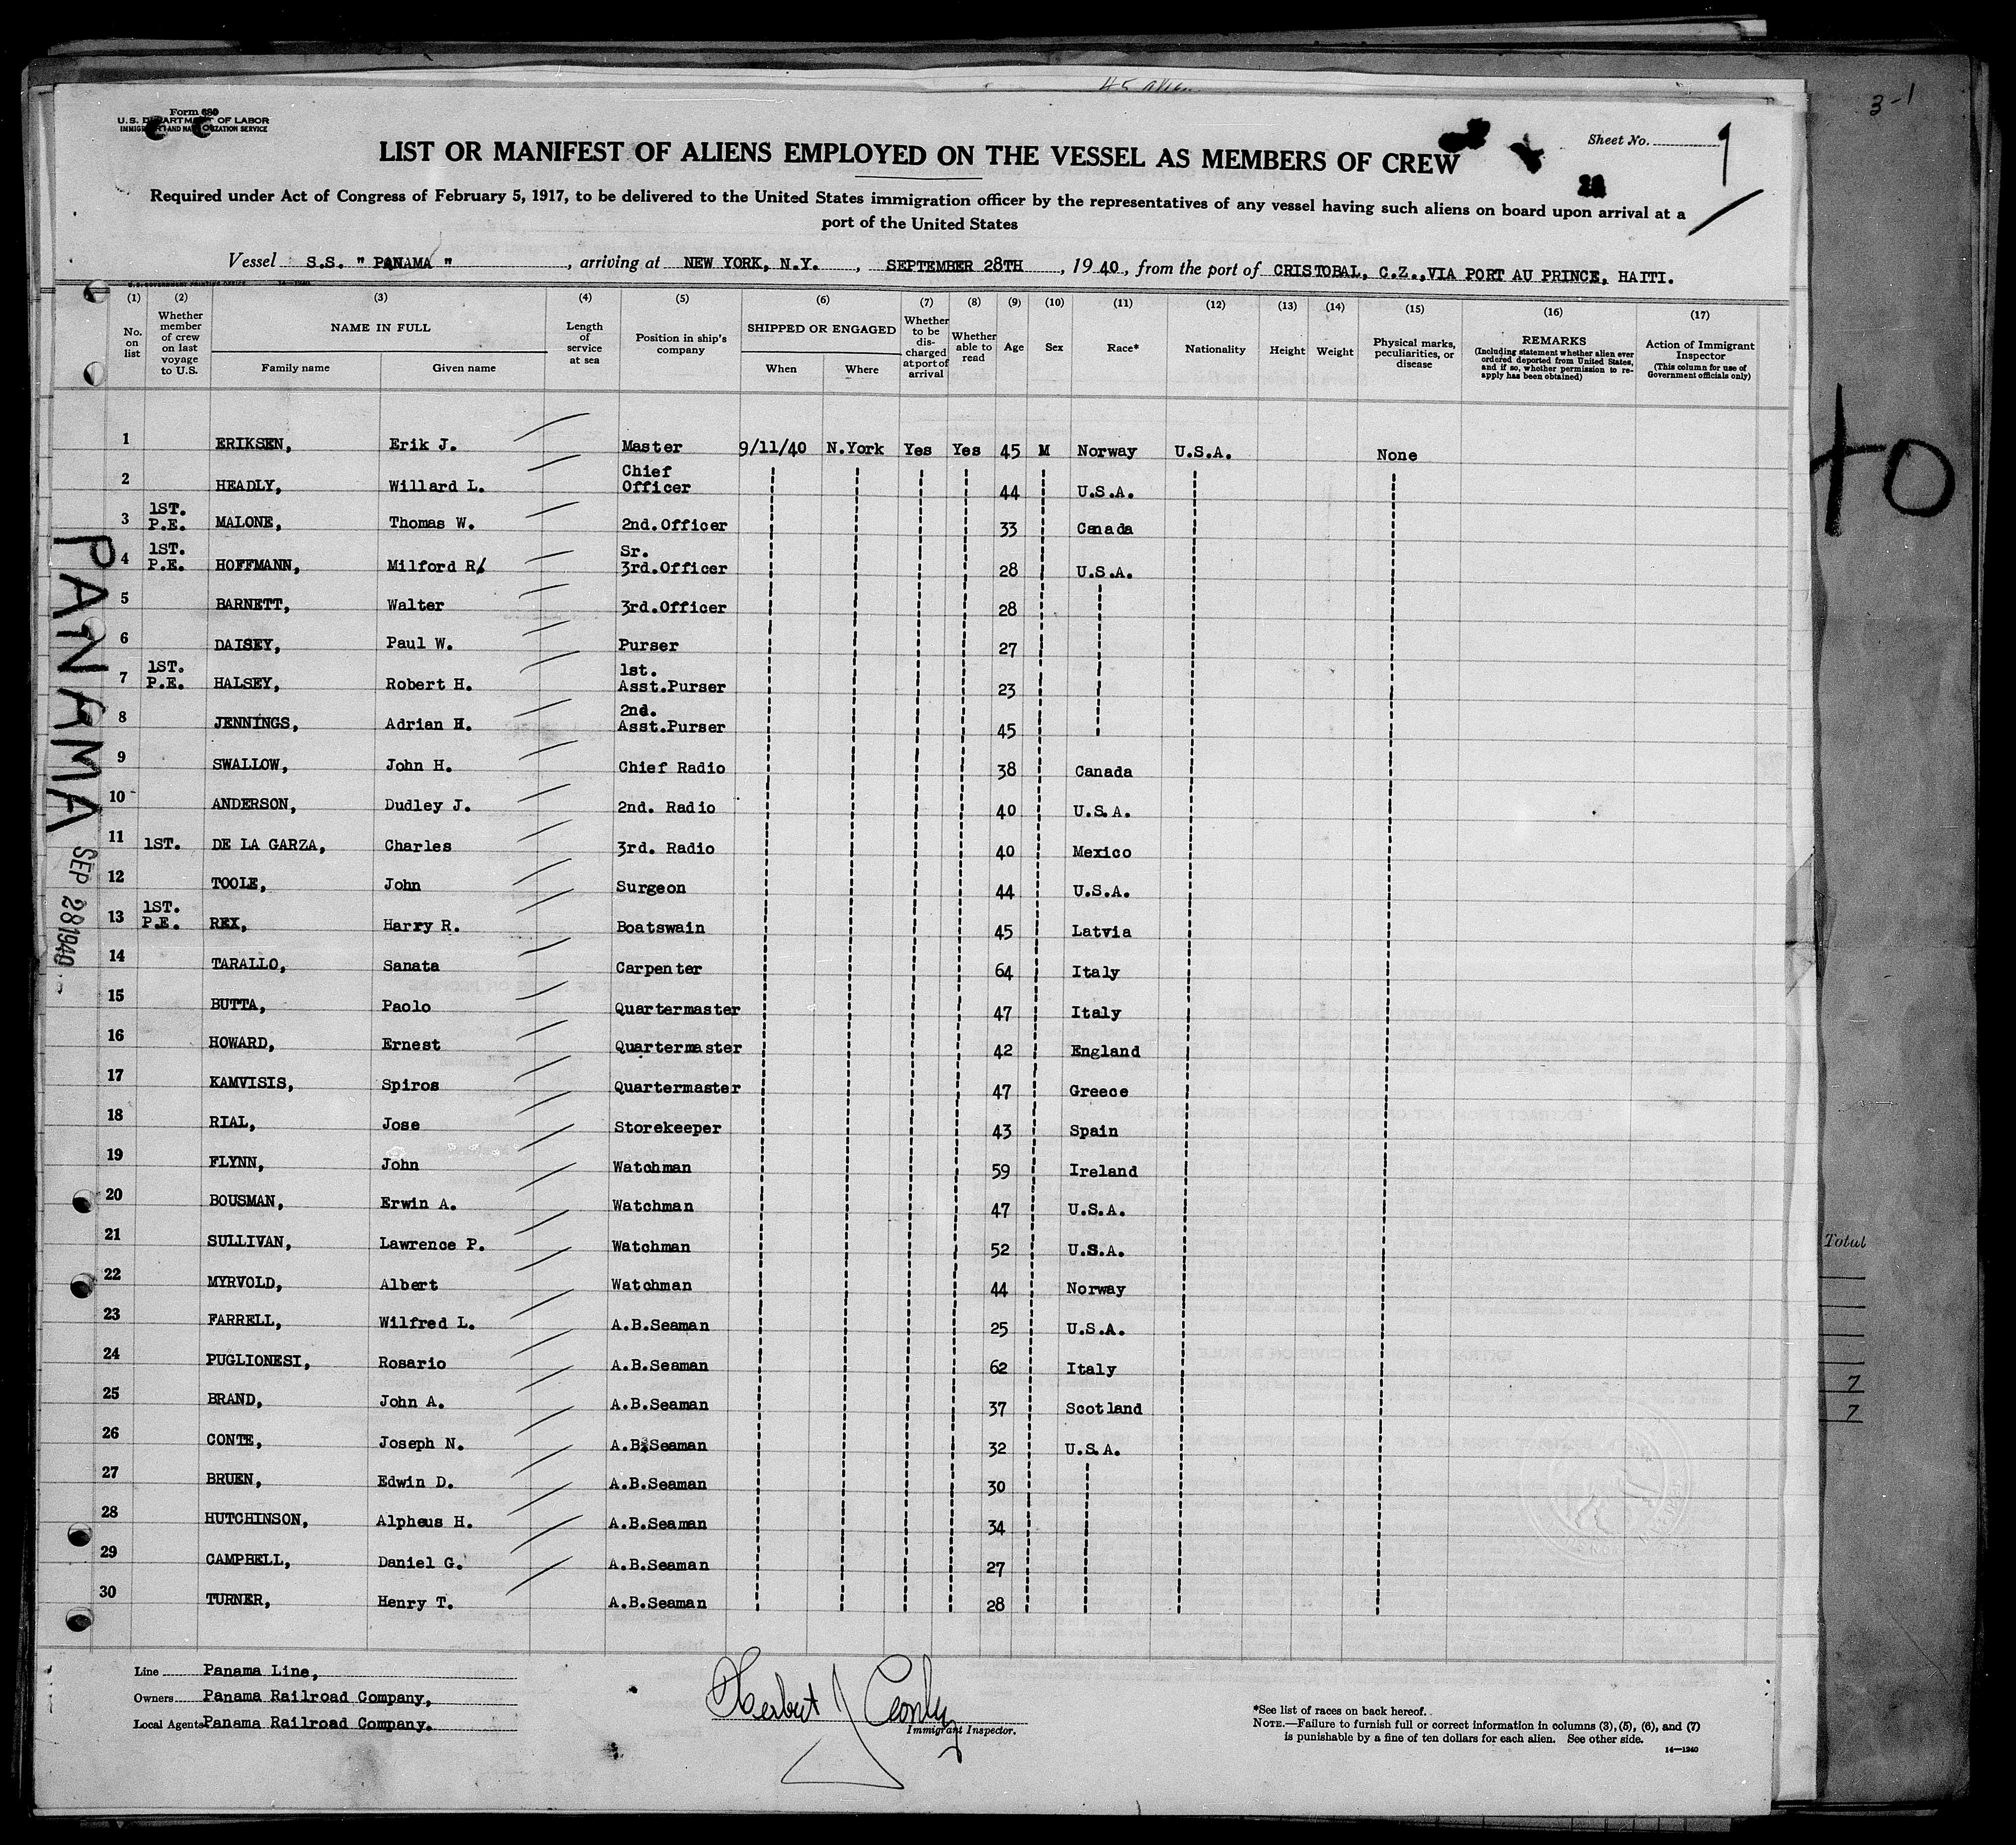 3-1
Form 680
U.S. DEPARTMENT OF LABOR
IMMIGRATION AND NATURALIZATION SERVICE
Sheet No. 1
LIST OR MANIFEST OF ALIENS EMPLOYED ON THE VESSEL AS MEMBERS OF CREW
Required under Act of Congress of February 5, 1917, to be delivered to the United States immigration officer by the representatives of any vessel having such aliens on board upon arrival at a
port of the United States
Vessel S.S. " PANAMA " , arriving at NEW YORK, N.Y. , SEPTEMBER 28TH , 1940, from the port of CRISTOBAL, C.Z.,VIA PORT AU PRINCE, HAITI.
U.S. GOVERNMENT PRINTING OFFICE 14-1240
(1) (2) (3) (4) (5) (6) (7) (8) (9) (10) (11) (12) (13) (14) (15) (16) (17)
No. on list
Whether member of crew on last voyage to U.S.
NAME IN FULL
Family name Given name
Length of service at sea
Position in ship's company
SHIPPED OR ENGAGED
When Where
Whether to be discharged at port of arrival
Whether able to read
Age Sex Race* Nationality Height Weight
Physical marks, peculiarities, or disease
REMARKS
(Including statement whether alien ever ordered deported from United States, and if so, whether permission to reapply has been obtained)
Action of Immigrant Inspector
(This column for use of Government officials only)
1 ERIKSEN, Erik J. Master 9/11/40 N.York Yes Yes 45 M Norway U.S.A. None
2 HEADLY, Willard L. Chief Officer 44 U.S.A.
3 1ST. P.E. MALONE, Thomas W. 2nd.Officer 33 Canada
4 1ST. P.E. HOFFMANN, Milford R. Sr. 3rd.Officer 28 U.S.A.
5 BARNETT, Walter 3rd.Officer 28
6 DAISEY, Paul W. Purser 27
7 1ST. P.E. HALSEY, Robert H. 1st. Asst.Purser 23
8 JENNINGS, Adrian H. 2nd. Asst.Purser 45
9 SWALLOW, John H. Chief Radio 38 Canada
10 ANDERSON, Dudley J. 2nd. Radio 40 U.S.A.
11 1ST. DE LA GARZA, Charles 3rd. Radio 40 Mexico
12 TOOLE, John Surgeon 44 U.S.A.
13 1ST. P.E. REX, Harry R. Boatswain 45 Latvia
14 TARALLO, Sanata Carpenter 64 Italy
15 BUTTA, Paolo Quartermaster 47 Italy
16 HOWARD, Ernest Quartermaster 42 England
17 KAMVISIS, Spiros Quartermaster 47 Greece
18 RIAL, Jose Storekeeper 43 Spain
19 FLYNN, John Watchman 59 Ireland
20 BOUSMAN, Erwin A. Watchman 47 U.S.A.
21 SULLIVAN, Lawrence P. Watchman 52 U.S.A.
22 MYRVOLD, Albert Watchman 44 Norway
23 FARRELL, Wilfred L. A.B.Seaman 25 U.S.A.
24 PUGLIONESI, Rosario A.B.Seaman 62 Italy
25 BRAND, John A. A.B.Seaman 37 Scotland
26 CONTE, Joseph N. A.B.Seaman 32 U.S.A.
27 BRUEN, Edwin D. A.B.Seaman 30
28 HUTCHINSON, Alpheus H. A.B.Seaman 34
29 CAMPBELL, Daniel G. A.B.Seaman 27
30 TURNER, Henry T. A.B.Seaman 28
PANAMA
SEP 28 1940
to
Total
7
7
Line Panama Line,
Owners Panama Railroad Company,
Local Agents Panama Railroad Company.
Herbert J
Immigrant Inspector.
*See list of races on back hereof.
NOTE.—Failure to furnish full or correct information in columns (3), (5), (6), and (7)
is punishable by a fine of ten dollars for each alien. See other side.
14—1240